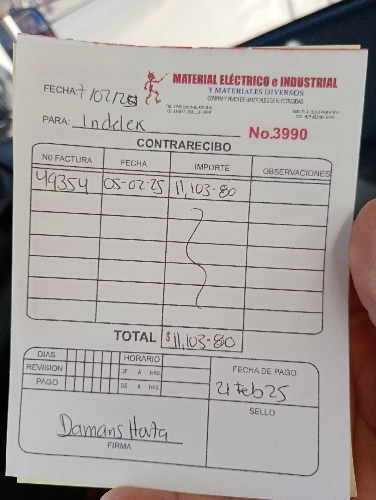 MATERIAL ELÉCTRICO e INDUSTRIAL
Y MATERIALES DIVERSOS
COMPRA Y VENTA DE MATERIALES DE ELECTRICIDAD
FECHA: 7/02/25
PARA: Indelek
No.3990
CONTRARECIBO
No FACTURA FECHA IMPORTE OBSERVACIONES
49354 05-02-25 11,103-80
TOTAL $11,103-80
DIAS HORARIO
REVISION DE A HRS
PAGO DE A HRS
FECHA DE PAGO
21 Feb 25
SELLO
FIRMA